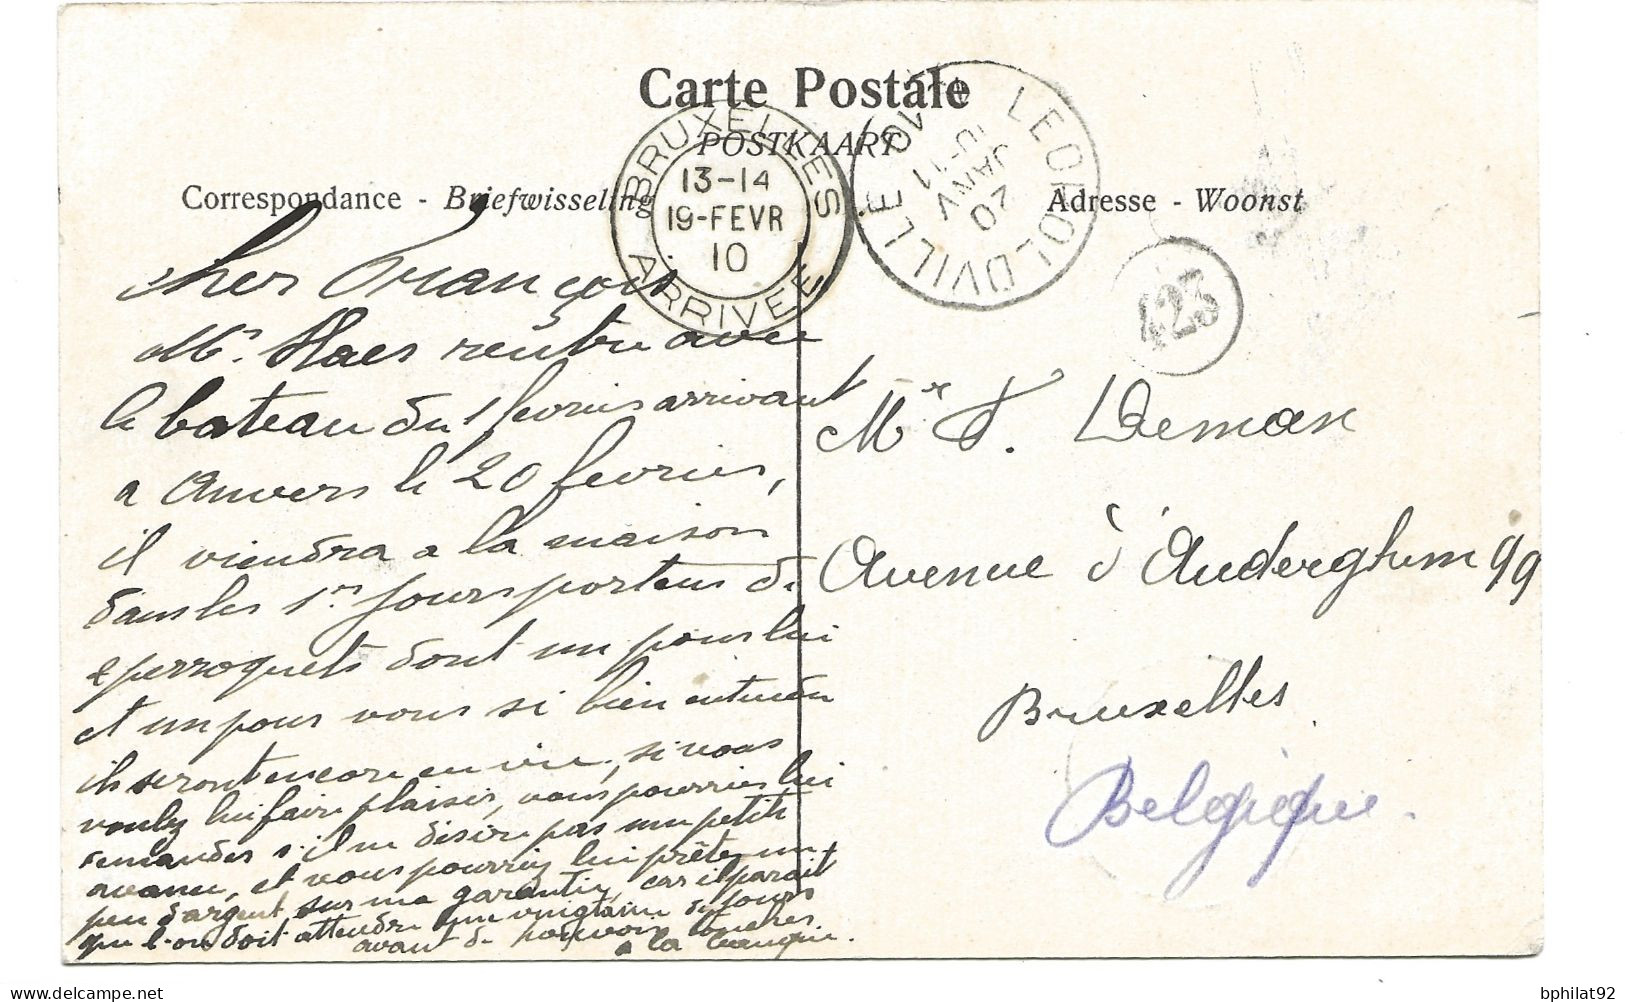 Carte Postale
POSTKAART
Correspondance - Briefwisseling
Adresse - Woonst
BRUXELLES
13-14
19-FEVR
10
ARRIVÉE
LEOPOLDVILLE
10-11
20
JANV
423
Cher François
Mr. Haes rentre avec
le bateau du 1 fevrier arrivant
a Anvers le 20 fevrier,
il viendra a la maison
dans les 1rs jours porteur de
2 perroquets dont un pour lui
et un pour vous si bien entendu
ils seront encore en vie, si vous
voulez lui faire plaisir, vous pourriez lui
demander s'il ne désire pas une petite
avance, et vous pourriez lui prêter un
peu d'argent sur ma garantie, car il parait
que l'on doit attendre une vingtaine de jours
avant de pouvoir toucher
a la banque.
Mr F. Deman
Avenue d'Auderghem 99
Bruxelles
Belgique.
bphilat92